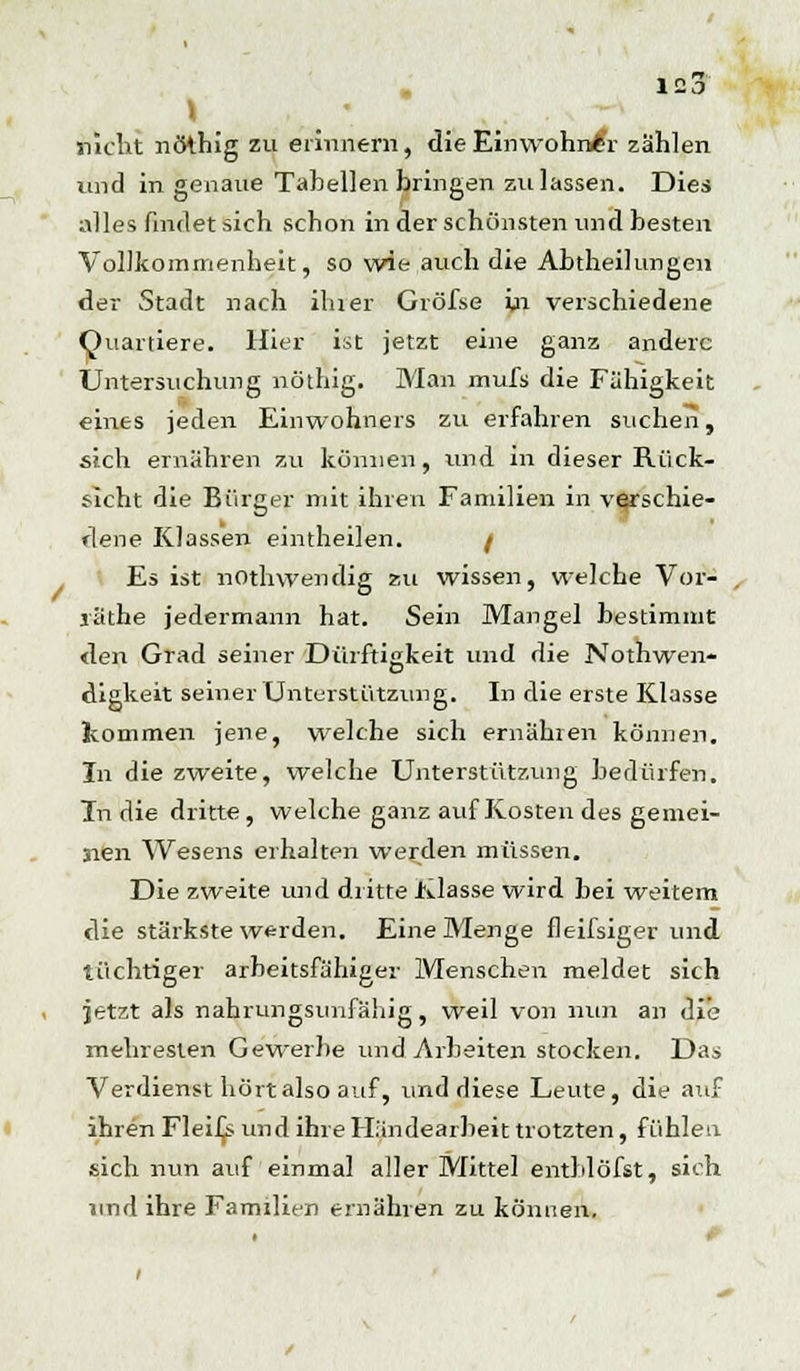 123
nicht nöthig zu erinnern, die Einwohner zählen
und in genaue Tabellen bringen zu lassen. Dies
alles findet sich schon in der schönsten und besten
Vollkommenheit, so wie auch die Abtheilungen
der Stadt nach ihrer Gröfse in verschiedene
Quartiere. Hier ist jetzt eine ganz andere
Untersuchung nöthig. Man mufs die Fähigkeit
eines jeden Einwohners zu erfahren suchen,
sich ernähren zu können, und in dieser Rück-
sicht die Bürger mit ihren Familien in verschie-
dene Klassen eintheilen.
Es ist nothwendig zu wissen, welche Vor-
räthe jedermann hat. Sein Mangel bestimmt
den Grad seiner Dürftigkeit und die Nothwen-
digkeit seiner Unterstützung. In die erste Klasse
kommen jene, welche sich ernähren können.
In die zweite, welche Unterstützung bedürfen.
In die dritte, welche ganz auf Kosten des gemei-
nen Wesens erhalten werden müssen.
Die zweite und dritte Klasse wird bei weitem
die stärkste werden. Eine Menge fleifsiger und
tüchtiger arbeitsfähiger Menschen meldet sich
jetzt als nahrungsunfähig, weil von nun an die
mehresten Gewerbe und Arbeiten stocken. Das
Verdienst hört also auf, und diese Leute, die auf
ihren Fleifs und ihre Händearbeit trotzten, fühlen
sich nun auf einmal aller Mittel entblöfst, sich
und ihre Familien ernähren zu können.